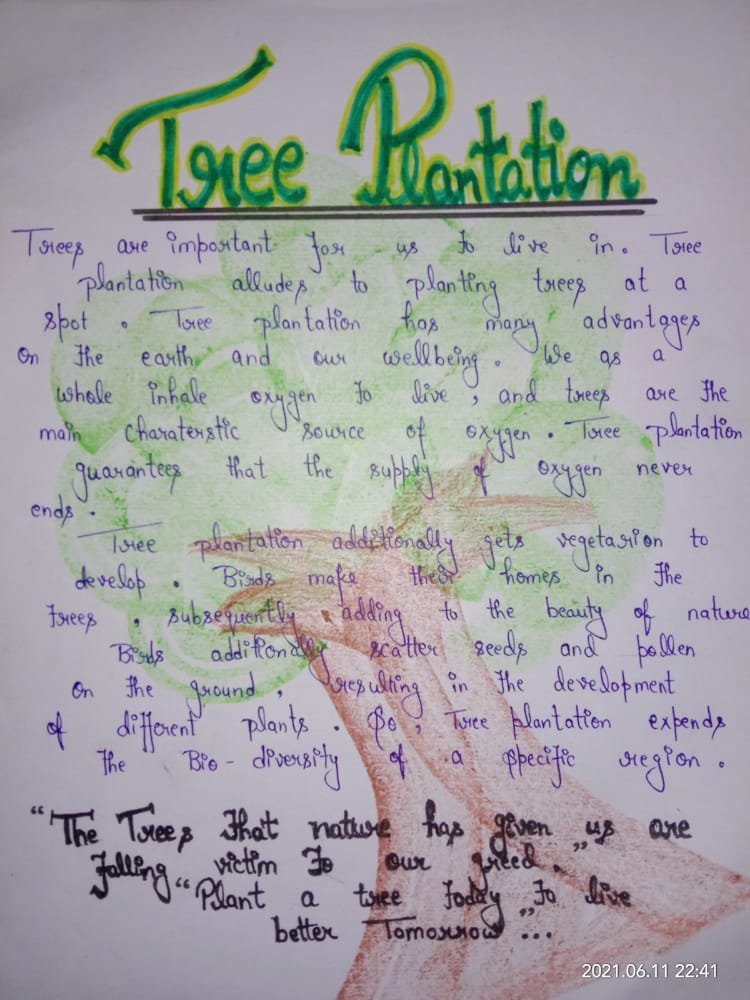 Tree Plantation
Trees are important for us to live in. Tree
plantation alludes to planting trees at a
spot. Tree plantation has many advantages
on the earth and our wellbeing. We as a
whole inhale oxygen to live, and trees are the
main charaterstic source of oxygen. Tree plantation
guarantees that the supply of oxygen never
ends.
Tree plantation additionally gets vegetarion to
develop. Birds make their homes in the
trees, subsequently adding to the beauty of nature
Birds additionally scatter seeds and pollen
on the ground, resulting in the development
of different plants. So, Tree plantation expends
the Bio-diversity of a specific region.
"The Trees that nature has given us are
falling victim to our greed."
"Plant a tree today to live
better Tomorrow"...
2021.06.11 22:41